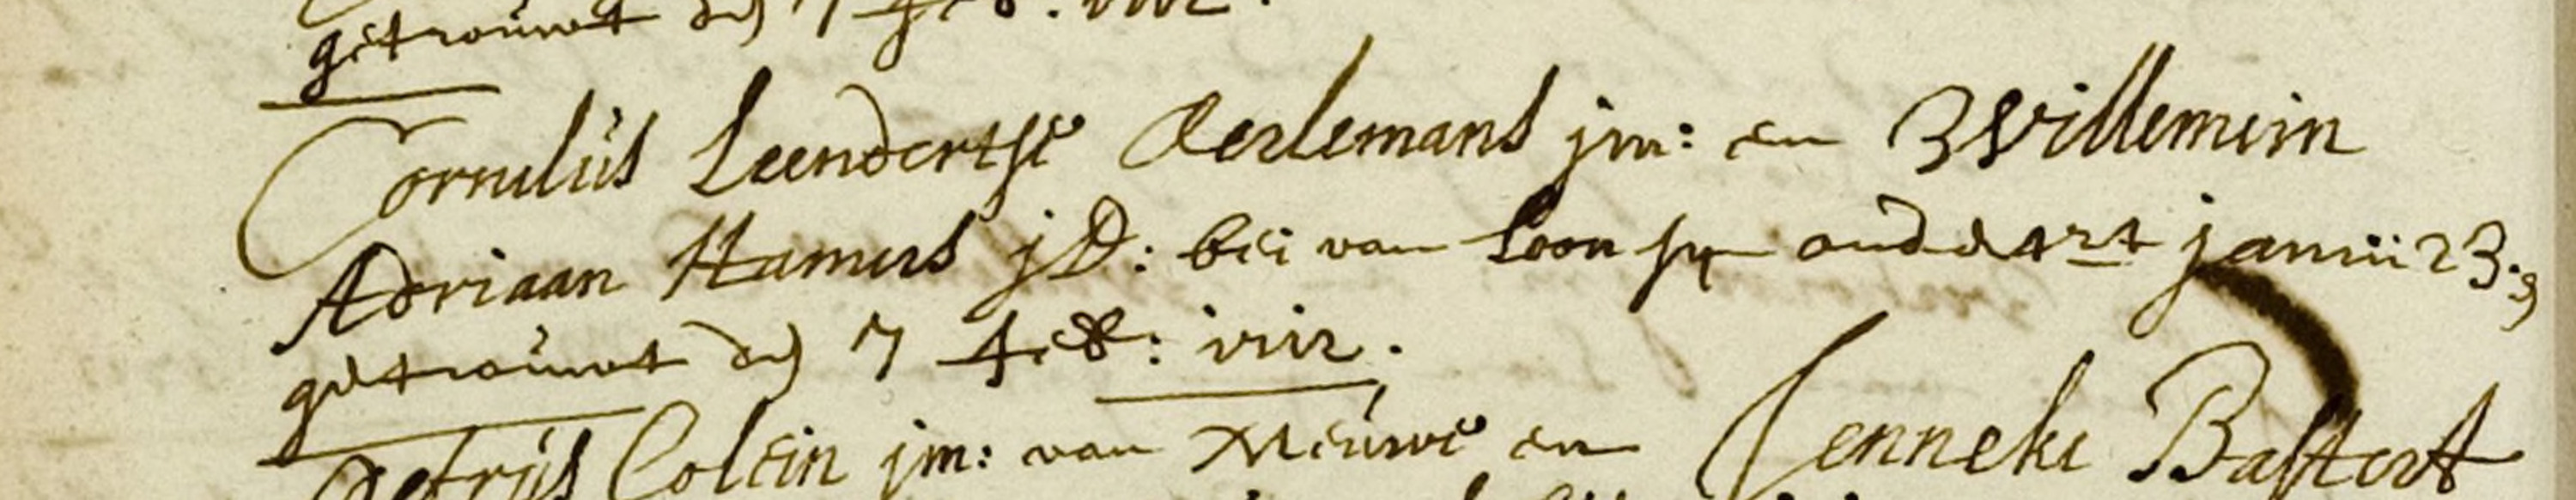 getrouwt den 7 feb. viir.
Cornelis Leendertse Aerlemans jm: en Willemein
Adriaan Hamers jD: bei van Loon syn ondert janui 23.
getrouwt den 7 feb: viir.
Petrus Colein jm: van en Jenneke Bastert